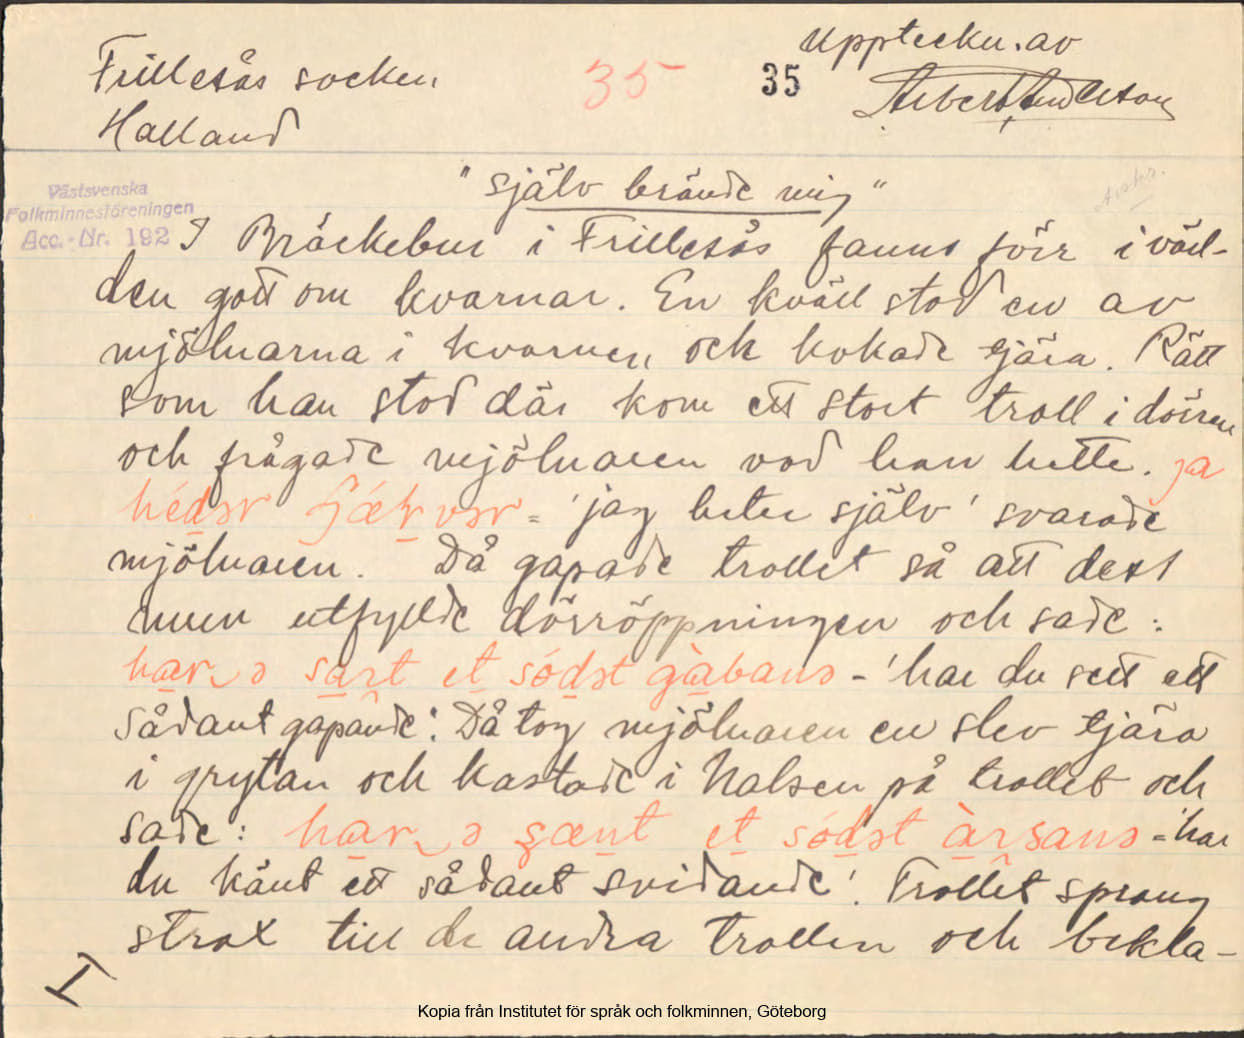 Frillesås socken
Halland
35
35
Uppteckn. av
Albert Andersson
Västsvenska
Folkminnesföreningen
Acc.-Nr. 192
"Själv brände mig"
I Bräckebur i Frillesås fanns förr i värl-
den gott om kvarnar. En kväll stod en av
mjölnarna i kvarnen och kokade tjära. Rätt
som han stod där kom ett stort troll i dörren
och frågade mjölnaren vad han hette. ja
hédər sjæɫvər = 'jag heter själv' svarade
mjölnaren. Då gapade trollet så att dess
mun utfyllde dörröppningen och sade:
har ə sart et sódət gàbans - 'har du sett ett
sådant gapande'. Då tog mjölnaren en slev tjära
i grytan och kastade i halsen på trollet och
sade: har ə çænt et sódət àrsans = 'har
du känt ett sådant svidande'. Trollet sprang
strax till de andra trollen och bekla-
I
Kopia från Institutet för språk och folkminnen, Göteborg